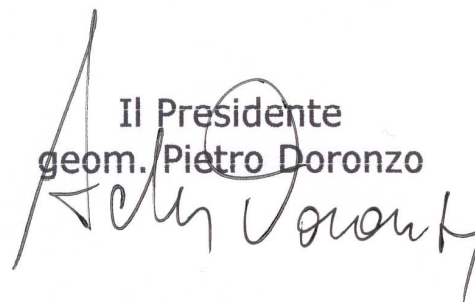 Il Presidente
geom. Pietro Doronzo